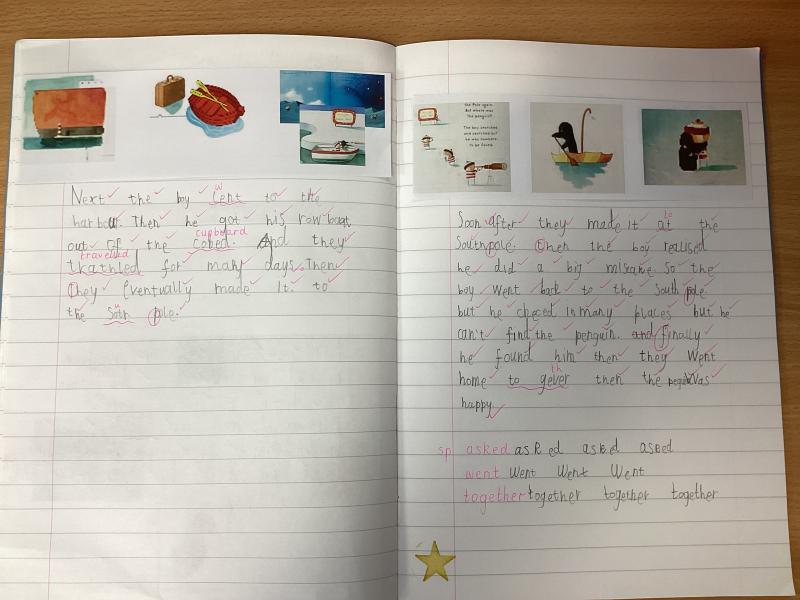 Next the boy cent to the
w
harbour. Then he got his row boat
out of the cobed. And they
cupboard
tkathled for many days. Then
travelled
they Eventually made it to
the Soth pole.
u
the Pole again.
But where was
the penguin?
The boy searched
and searched but
he was nowhere
to be found.
Soon after they made it at the
to
South pole. then the boy realised
he did a big mistake so the
boy went back to the South pole
but he checed in many places but he
can't find the penguin. and finally
he found him then they went
home to gever then the penguin was
th
happy.
sp asked asked asked asked
went went went went
together together together together